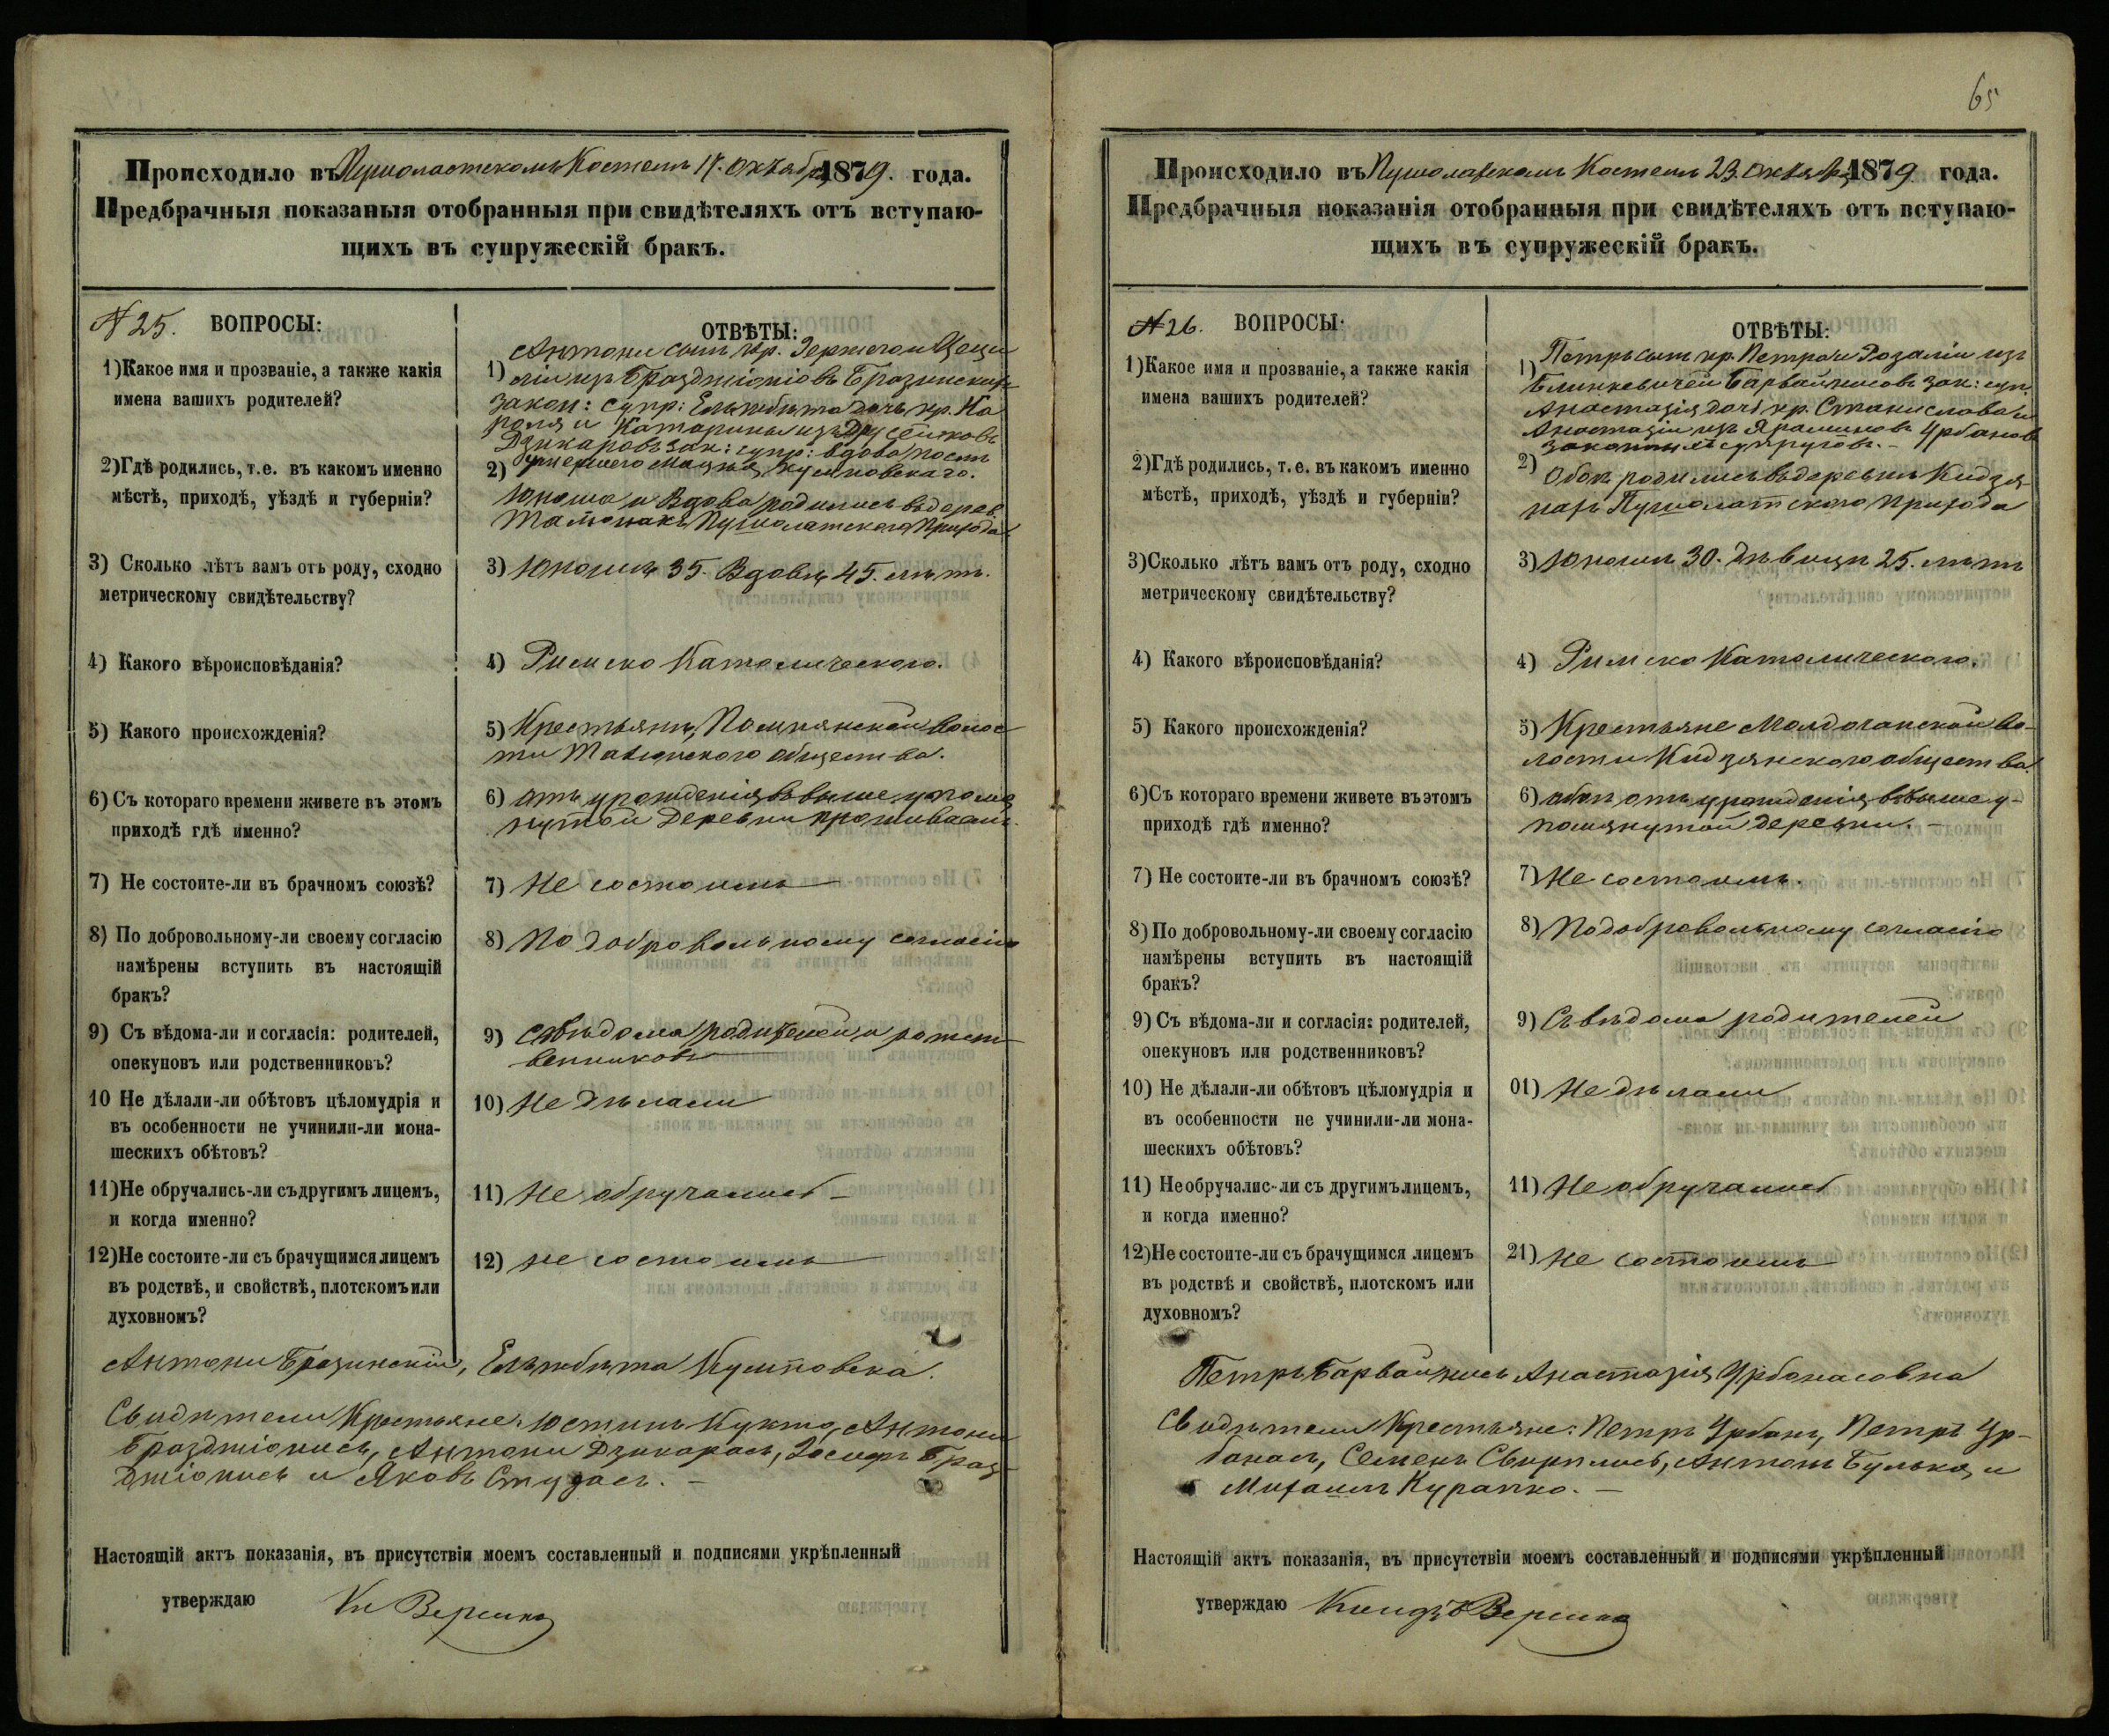 Происходило въ Пушолатскомъ Костелѣ 17. Октября 1879. года.
Предбрачныя показаныя отобранныя при свидѣтеляхъ отъ вступаю-
щихъ въ супружескій бракъ.
N 25. ВОПРОСЫ:
ОТВѢТЫ:
1)Какое имя и прозваніе, а также какія
имена вашихъ родителей?
1) Антони сынъ кр.
законн: супр: Ельжбѣта дочь кр. Ка
роля и Катарины изъ
зак: супр: вдова послѣ
умершаго
2)Гдѣ родились, т.е. въ какомъ именно
мѣстѣ, приходѣ, уѣздѣ и губерніи?
2)
Юноша и Вдова родились въ дерев.
Пушолатскаго Прихода
3) Сколько лѣтъ вамъ отъ роду, сходно
метрическому свидѣтельству?
3) Юноша 35. Вдова 45. лѣтъ.
4) Какого вѣроисповѣданія?
4) Римско Католическаго.
5) Какого происхожденія?
5) Крестьяне, волос
ти общества.
6) Съ котораго времени живете въ этомъ
приходѣ гдѣ именно?
6) отъ урожденія въ выше упомя
нутой Деревни проживаемъ
7) Не состоите-ли въ брачномъ союзѣ?
7) Не состоимъ
8) По добровольному-ли своему согласію
намѣрены вступить въ настоящій
бракъ?
8) По добровольному согласію
9) Съ вѣдома-ли и согласія: родителей,
опекуновъ или родственниковъ?
9) Съ вѣдома родителей и родст
венниковъ
10 Не дѣлали-ли обѣтовъ цѣломудрія и
въ особенности не учинили-ли мона-
шескихъ обѣтовъ?
10) Не дѣлали
11)Не обручались-ли съ другимъ лицемъ,
и когда именно?
11) Не обручались –
12)Не состоите-ли съ брачущимся лицемъ
въ родствѣ, и свойствѣ, плотскомъ или
духовномъ?
12) не состоимъ
Антони Бразинскій, Ельжбѣта Кушповска.
Свидѣтели Крестьяне: Юстинъ Кукта, Антони
Бразджіонисъ, Антони Дзикарасъ, Іосифъ Браз
джіонисъ и Яковъ Стугасъ. –
Настоящій актъ показанія, въ присутствіи моемъ составленный и подписями укрѣпленный
утверждаю
65
Происходило въ Пушолатскомъ Костелѣ 23. Октября 1879 года.
Предбрачныя показанія отобранныя при свидѣтеляхъ отъ вступаю-
щихъ въ супружескій бракъ.
N 26. ВОПРОСЫ:
ОТВѢТЫ:
1)Какое имя и прозваніе, а также какія
имена вашихъ родителей?
1) Петръ сынъ кр. Петра и Розаліи изъ
Блинкевичей зак: суп.
Анастазія дочь кр. Станислава и
Анастазіи изъ Урбановъ
законныхъ супруговъ. –
2)Гдѣ родились, т. е. въ какомъ именно
мѣстѣ, приходѣ, уѣздѣ и губерніи?
2) Обое родились въ деревнѣ Кидзя
нахъ Пушолатскаго прихода
3)Сколько лѣтъ вамъ отъ роду, сходно
метрическому свидѣтельству?
3) Юноша 30. дѣвица 25. лѣтъ
4) Какого вѣроисповѣданія?
4) Римско Католическаго.
5) Какого происхожденія?
5) Крестьяне во-
лости Кидзянскаго общества.
6)Съ котораго времени живете въ этомъ
приходѣ гдѣ именно?
6) обое отъ урожденія въ выше у-
помянутой деревни. –
7) Не состоите-ли въ брачномъ союзѣ?
7) Не состоимъ.
8) По добровольному-ли своему согласію
намѣрены вступить въ настоящій
бракъ?
8) По добровольному согласію
9) Съ вѣдома-ли и согласія: родителей,
опекуновъ или родственниковъ?
9) Съ вѣдома родителей
10) Не дѣлали-ли обѣтовъ цѣломудрія и
въ особенности не учинили-ли мона-
шескихъ обѣтовъ?
01) Не дѣлали
11) Необручалис-ли съ другимъ лицемъ,
и когда именно?
11) Не обручались
12)Не состоите-ли съ брачущимся лицемъ
въ родствѣ и свойствѣ, плотскомъ или
духовномъ?
21) Не состоимъ
Петръ Анастазія Урбанасовна
Свидѣтели Крестьяне: Петръ Урбанъ, Петръ Ур-
банасъ, Семенъ Антонъ Булька, и
Михаилъ Курапко. –
Настоящій актъ показанія, въ присутствіи моемъ составленный и подписями укрѣпленный
утверждаю Ксендзъ